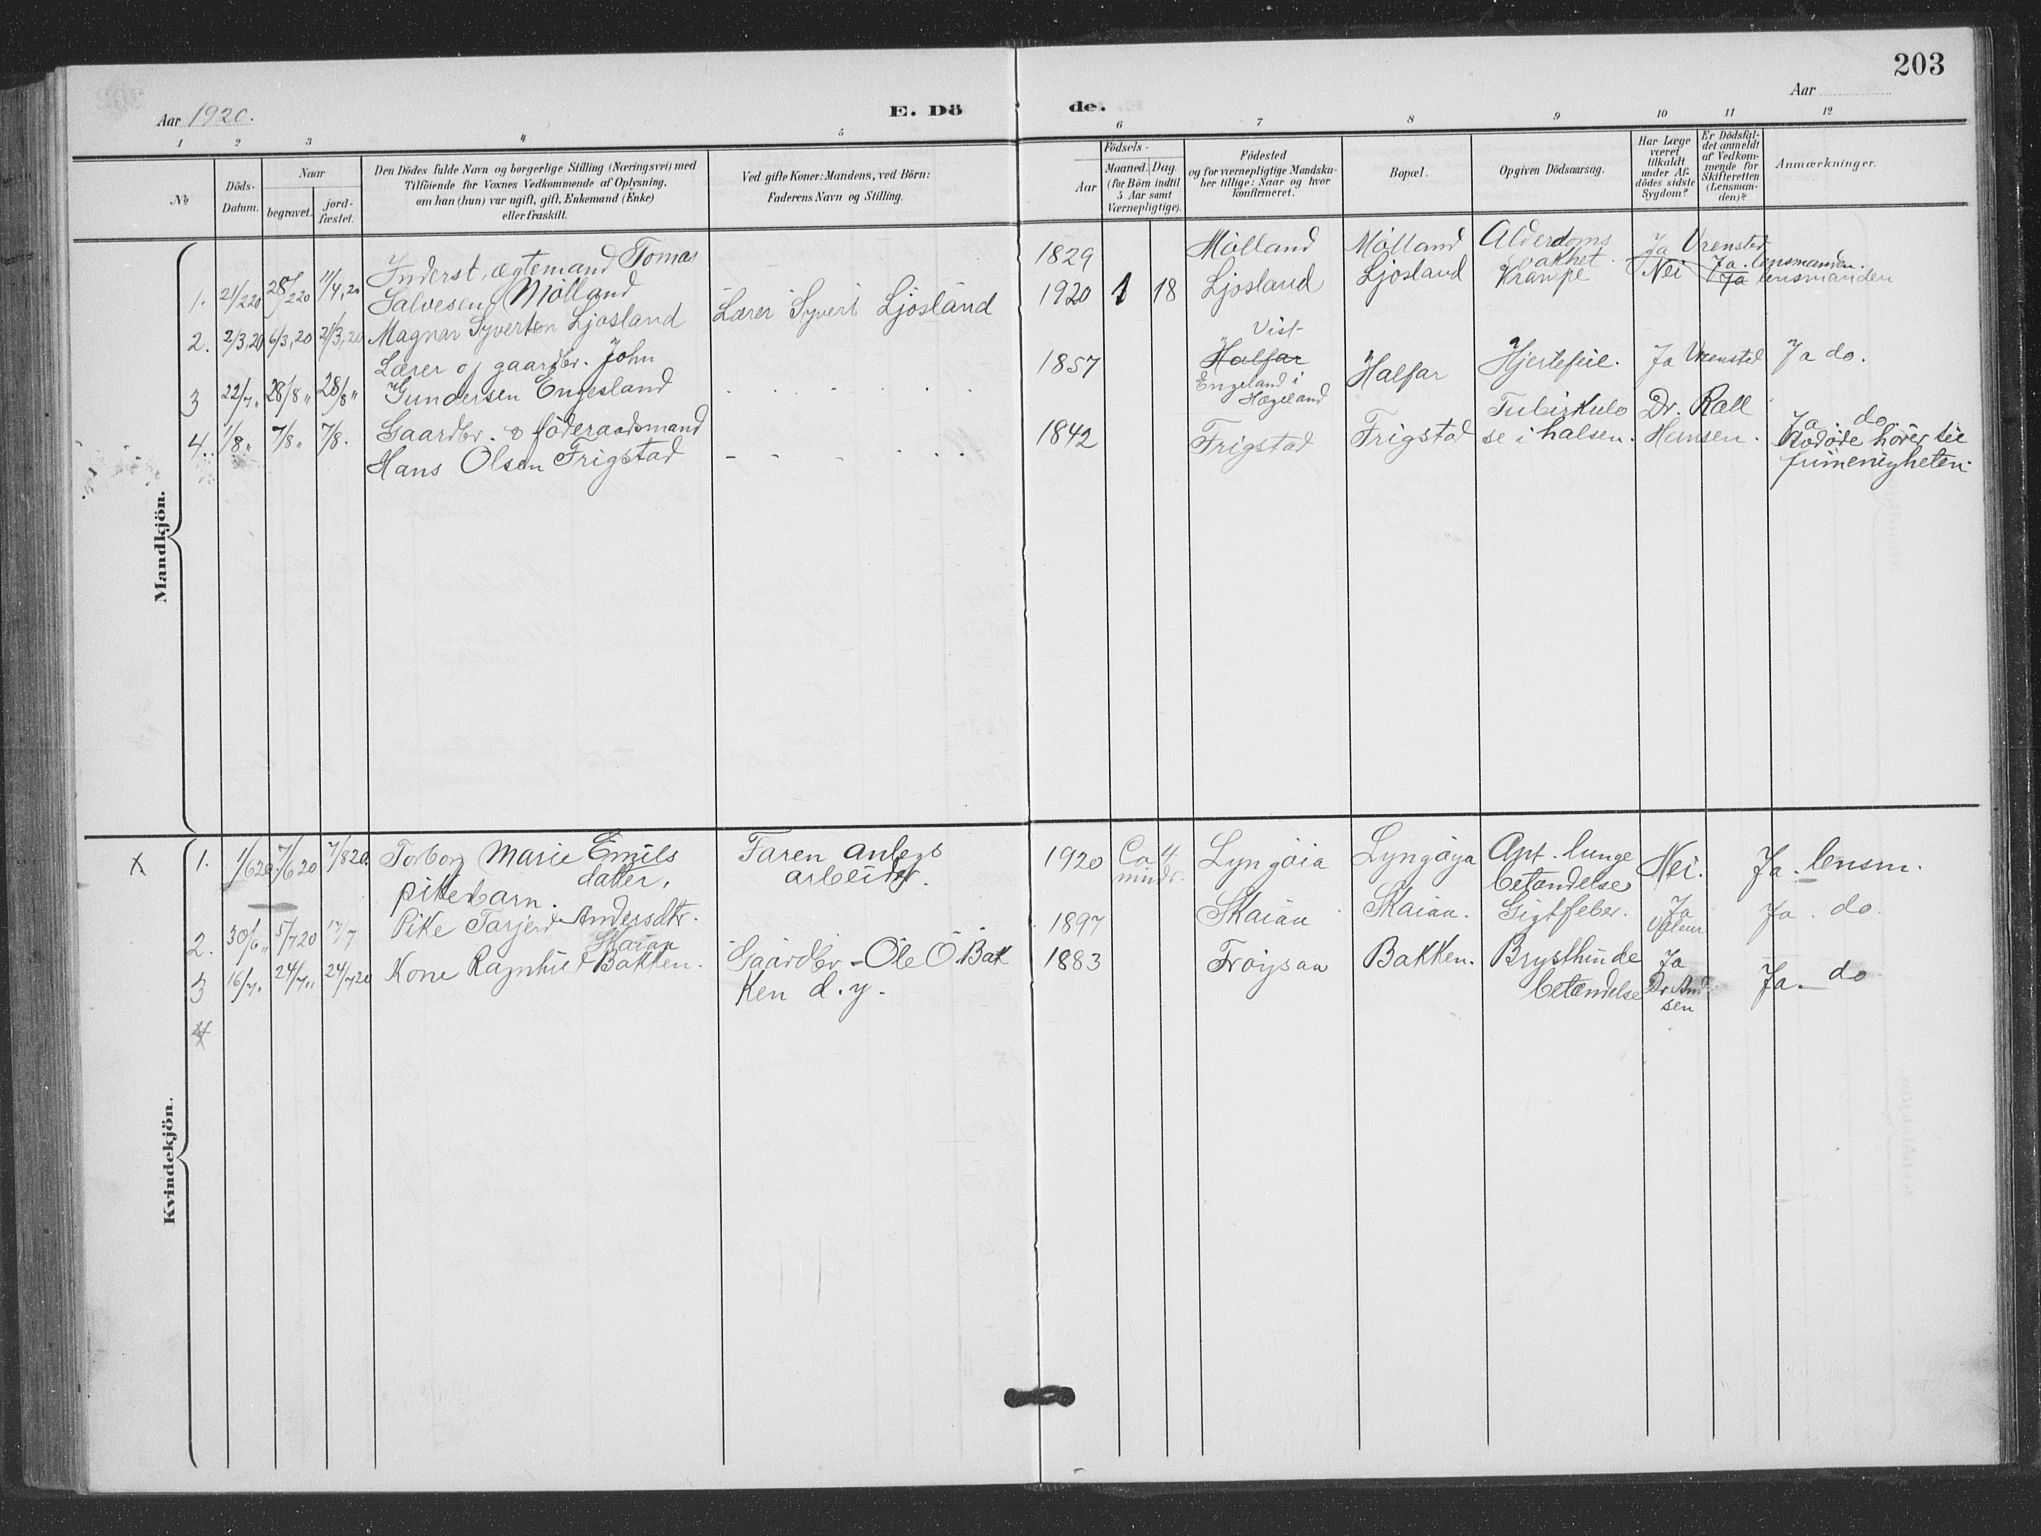 203
Aar 1920.
E. Dö
de.
Aar
1 2 3 4 5 6 7 8 9 10 11 12
No
Döds-
Datum.
Naar
begravet.
jord-
fæstet.
Den Dödes fulde Navn og borgerlige Stilling (Næringsvei) med
Tilföiende for Voxnes Vedkommende af Oplysning,
om han (hun) var ugift, gift, Enkemand (Enke)
eller fraskilt.
Ved gifte Koner: Mandens, ved Börn:
Faderens Navn og Stilling.
Födsels-
Aar
Maaned. Dag
(for Börn indtil
5 Aar samt
Værnepligtige).
Födested
og for værnepligtige Mandska-
ber tillige: Naar og hvor
konfirmeret.
Bopæl.
Opgiven Dödsaarsag.
Har Læge
været
tilkaldt
under Af-
dödes sidste
Sygdom?
Er Dödsfal-
det anmeldt
af Vedkom-
mende for
Skifteretten
(Lensman-
den)?
Anmærkninger.
Mandkjön.
1. 21/2 20 28/2 20 11/4, 20
Inderst, ægtemand Tomas
Salvesen Mölland
1829 Mölland Mölland Alderdoms
Ja Vrensted
Ja. lensmanden.
2. 2/3, 20 6/3, 20 21/3, 20
Magnar Syvertsen Ljosland
Lærer Syvert Ljosland
1920 1 18 Ljosland Ljosland Krampe Nei Ja lensmanden
3 22/7 " 28/8 " 28/8 "
Lærer og gaardbr. John
Gundersen Engesland
1857
Halfar
Engeland i
Hægeland
Halfar Hjertefeil. Ja Vrensted Ja do.
4. 1/8 " 7/8 " 7/8.
Gaardbr. & föderaadsmand
Hans Olsen Frigstad
1842 Frigstad Frigstad
Tuberkulo
se i halsen.
Dr. Rall
Hansen.
Ja. do
hörer til
frimenigheten.
Kvindekjön.
X 1. 1/6 20 7/6 20 7/8 20.
Torborg Marie Emils
datter,
pikebarn.
Faren anlegs
arbeider.
1920 Ca 4
mndr.
Lyngöia Lyngöya
Apt. lunge
betændelse
Nei. Ja. lensm.
2. 30/6 " 5/7 20 17/7
Pike Tarjerd Andersdtr.
Skaiaa
1897 Skaiaa Skaiaa. Gigtfeber. Ja
Ja. do.
3 16/7 " 24/7 " 24/7 20
Kone Ragnhild Bakken.
Gaardbr - Ole O. Bak
ken d. y.
1883 Fröysaa Bakken.
Brysthinde
betændelse
Ja
Ja. do
4